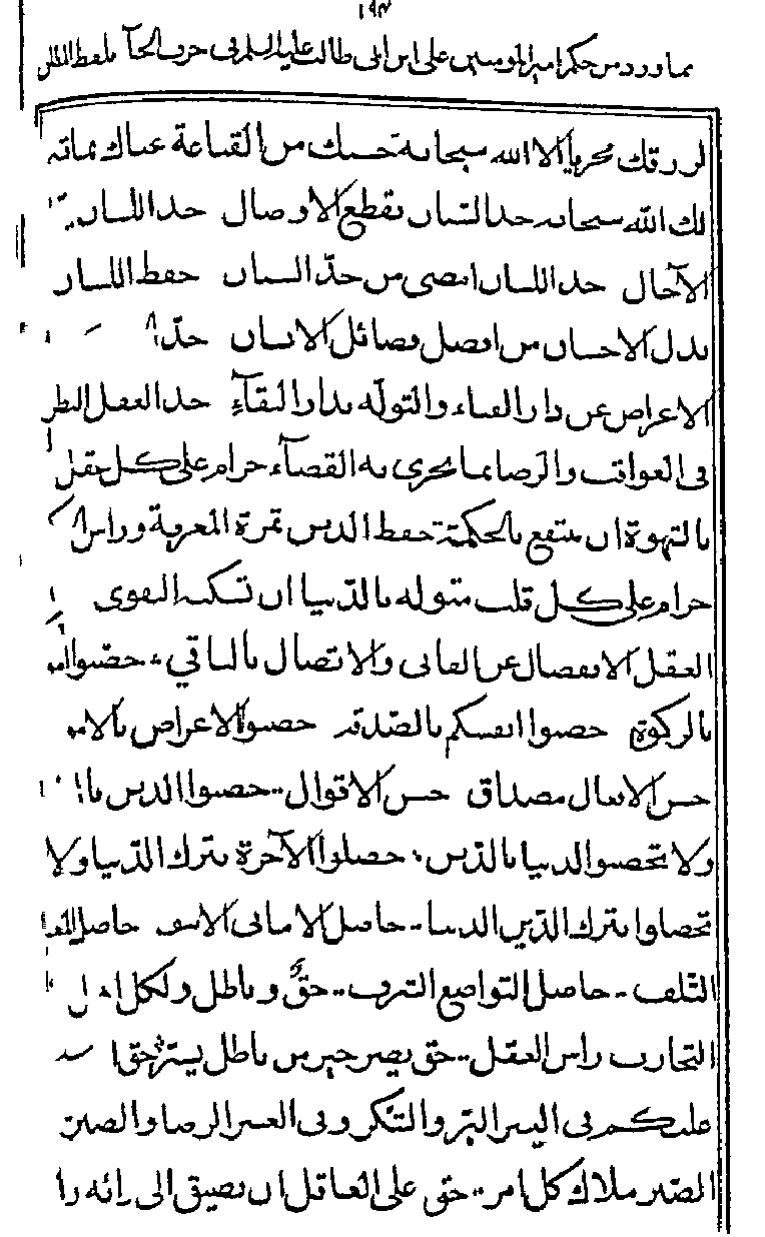 ١٩٣
مما ورد من حكم امير المومنين على ابن ابى طالب عليه السلم فى حرف الحآ بلفظ المطلق
لررقك مجريا الا الله سبحانه حسبك من القناعة غناك بما قسم
لك الله سبحانه حد السنان يقطع الاوصال حد اللسان
الآجال حد اللسان امضى من حدّ السنان حفظ اللسان
بذل الاحسان من افضل فضائل الانسان حدّ
الاعراض عن دار الفناء والتولّه بدار البقآءِ حد العقل النظر
فى العواقب والرضا بما يجرى به القضآء حرام على كل عقل
بالشهوة ان ينتفع بالحكمة حفظ الدين ثمرة المعرفة وراس
حرام على كل قلب متوله بالدّنيا ان تسكنه التقوى
العقل الانفصال عن الفانى والاتصال بالباقي حصّنوا
بالزكوة حصنوا انفسكم بالصّدقه حصنوا الاعراض بالا
حسن الافعال مصداق حسن الاقوال حصنوا الدين با
ولا تحصنوا الدنيا بالدّين حصلوا الآخرة بترك الدّنيا ولا
تحصلوا بترك الدّين الدنيا حاصل الامانى الاسف حاصل
التّلف حاصل التواضع الشرف حقٌّ و باطل ولكل
التجارب راس العقل حق يضر خير من باطل يسرّ حق
عليكم فى اليسر البرّ والشّكر وفى العسر الرضا والصبر
الصّبر ملاك كل امر حق على العاقل ان يضيق الى رائه